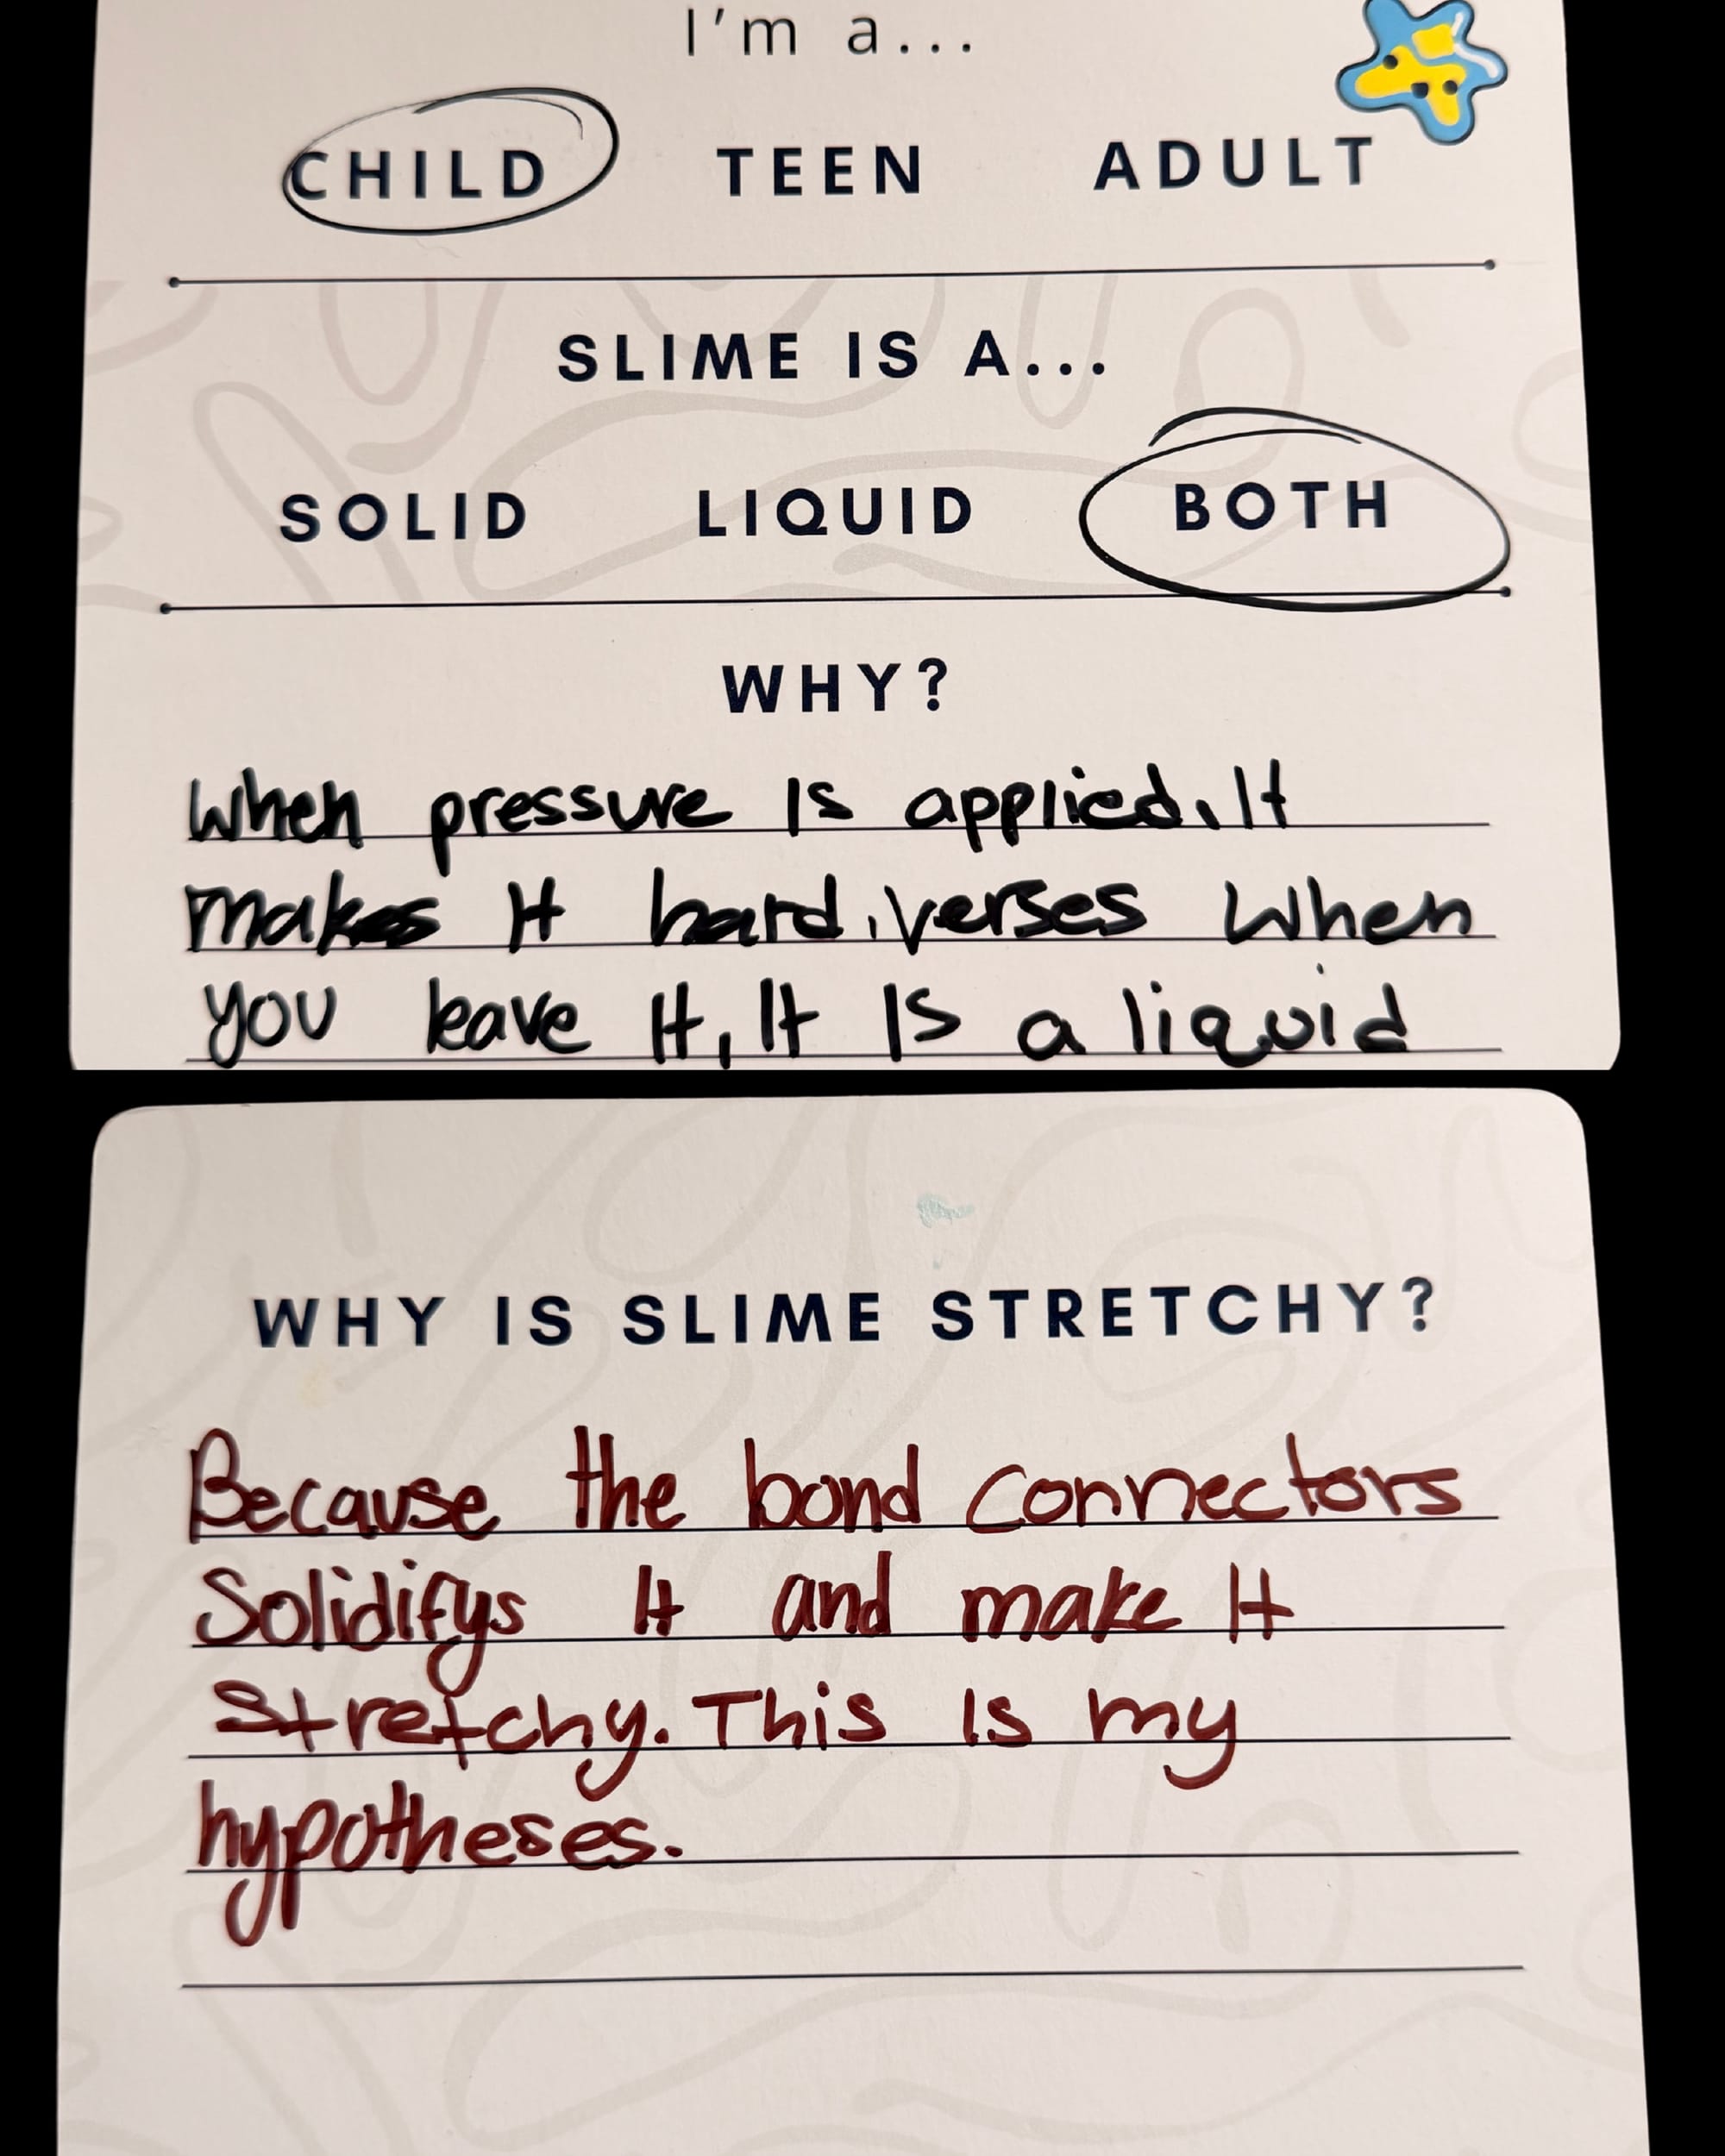 I'm a...
CHILD TEEN ADULT
SLIME IS A...
SOLID LIQUID BOTH
WHY?
When pressure Is applied, It
makes It hard, verses when
you leave It, It Is a liquid
WHY IS SLIME STRETCHY?
Because the bond connectors
Solidifys It and make It
Stretchy. This Is my
hypotheses.